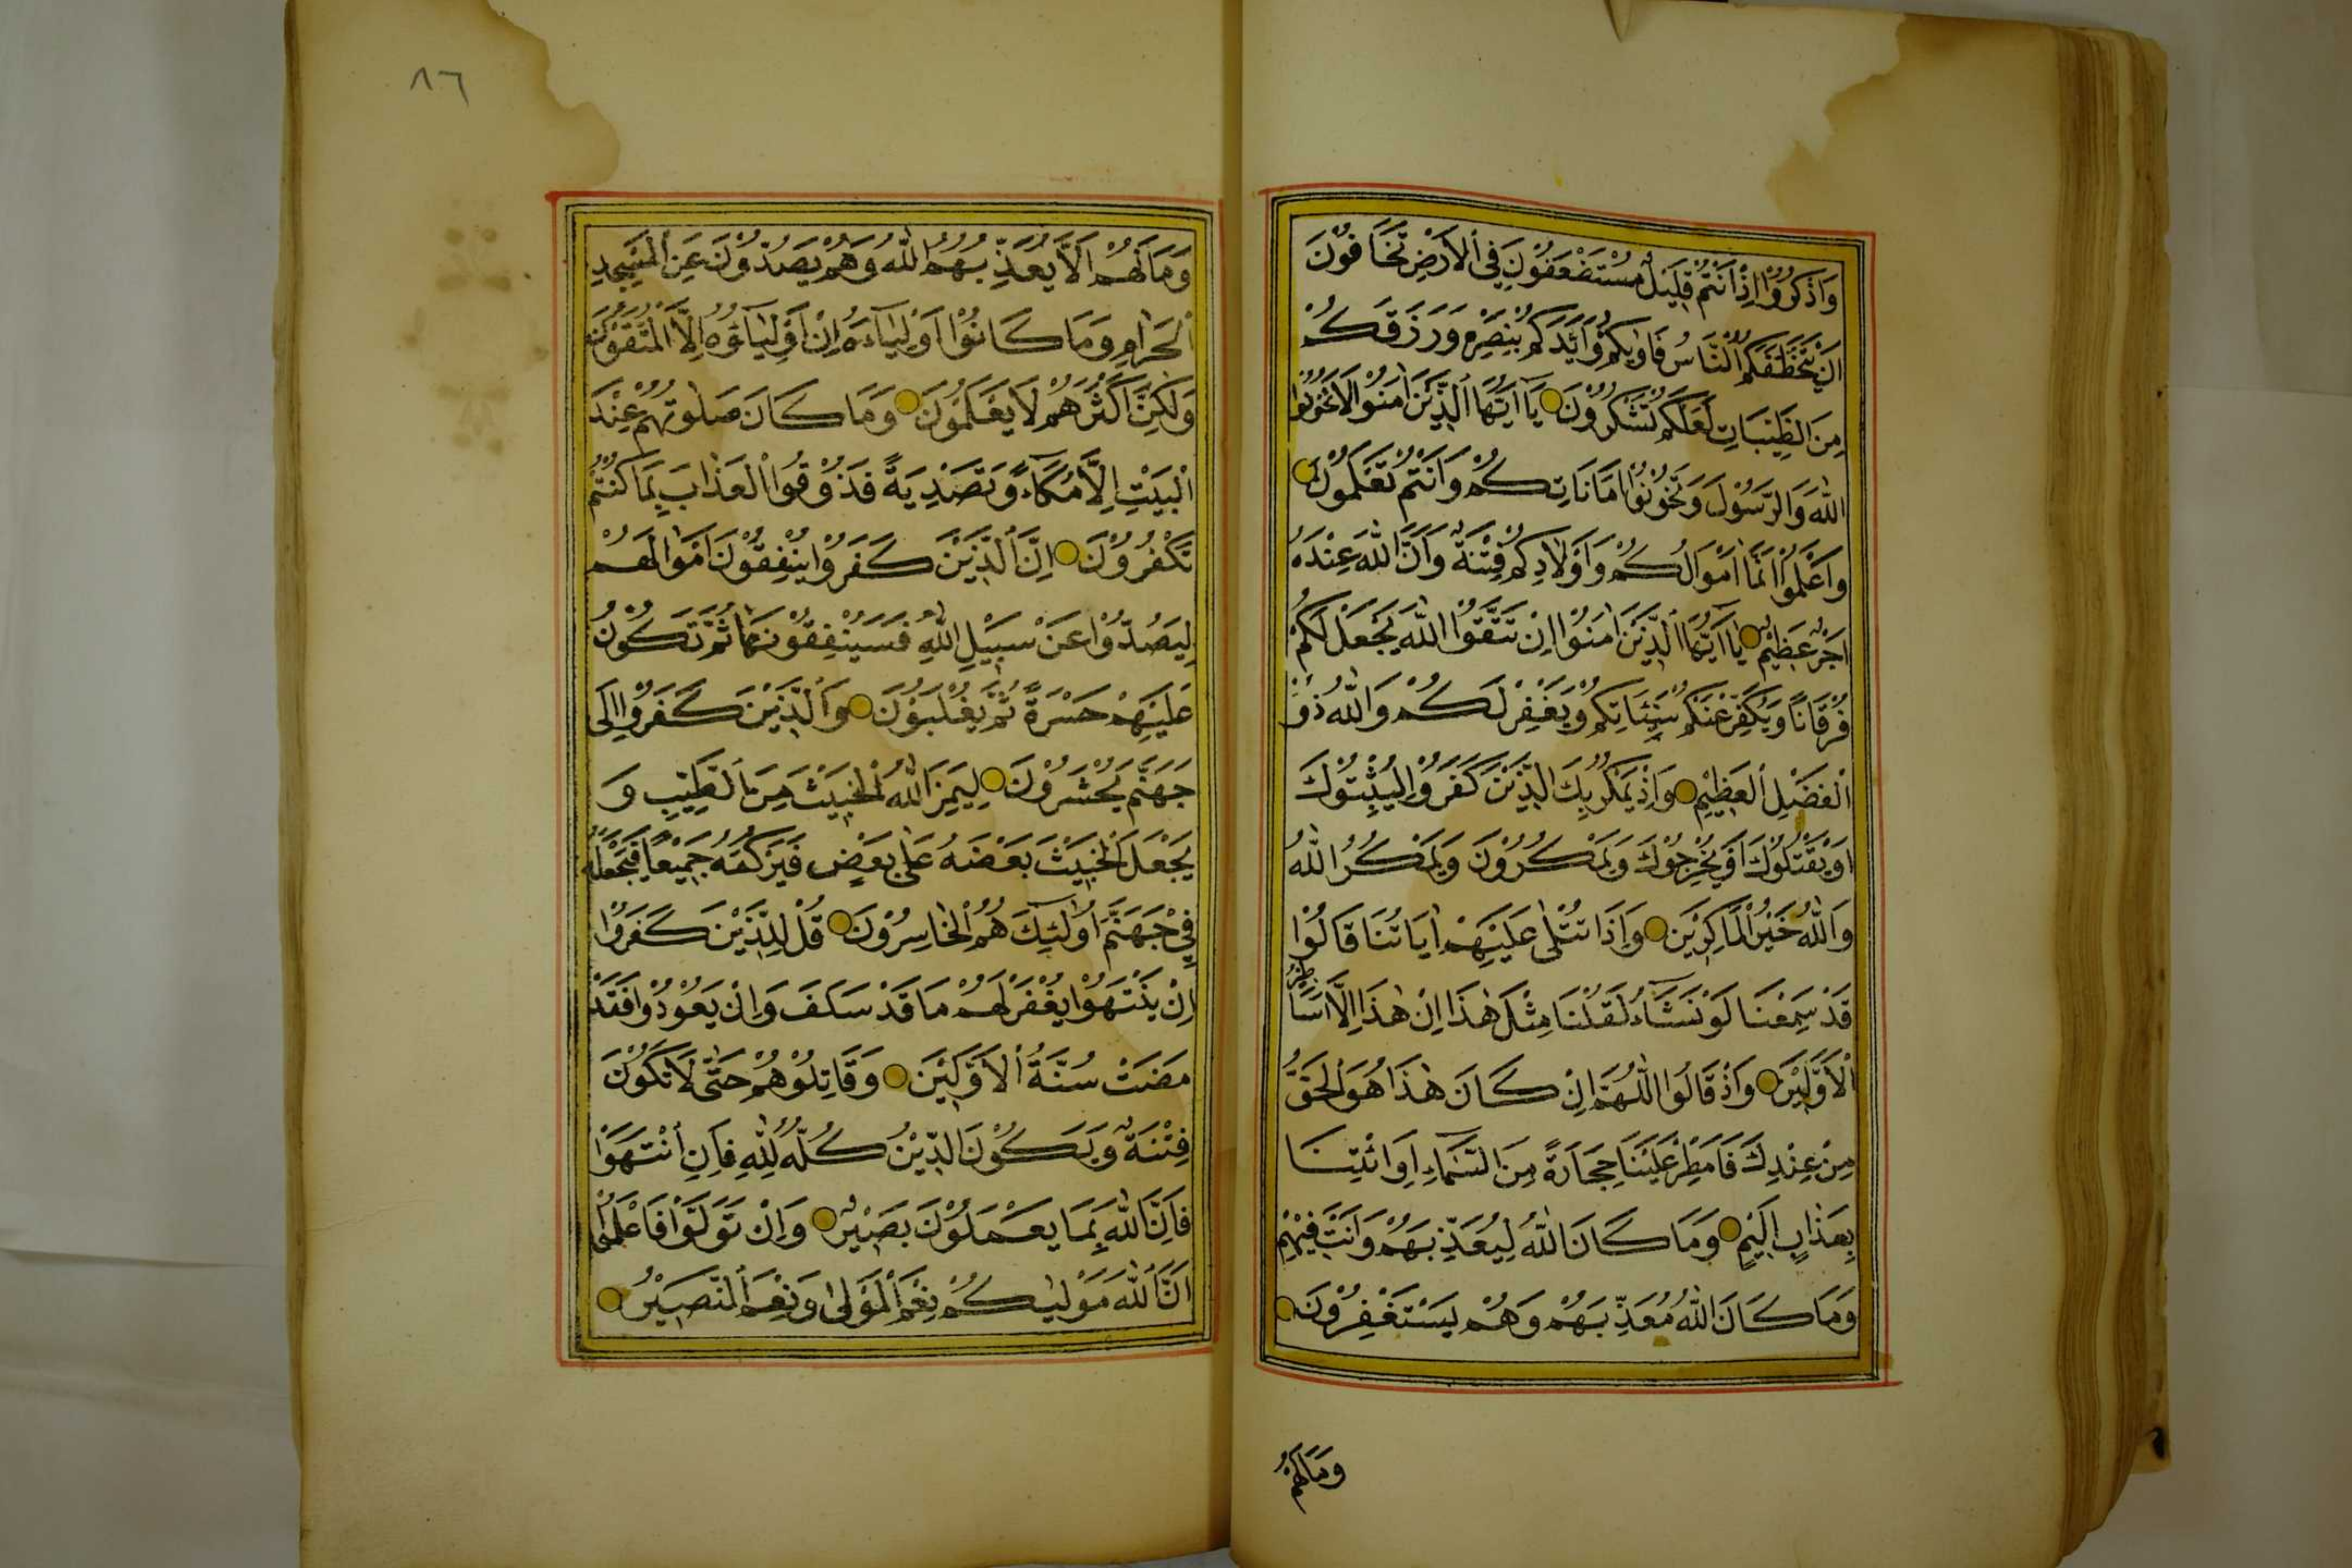 وَاذْكُرُوْا اِذْ اَنْتُمْ قَلِيْلٌ مُسْتَضْعَفُوْنَ فِى الْاَرْضِ تَخَافُوْنَ
اَنْ يَتَخَطَّفَكُمُ النَّاسُ فَاٰوٰيكُمْ وَاَيَّدَكُمْ بِنَصْرِهِ وَرَزَقَكُمْ
مِنَ الطَّيِّبَاتِ لَعَلَّكُمْ تَشْكُرُوْنَ يَآ اَيُّهَا الَّذِيْنَ اٰمَنُوْا لَا تَخُوْنُوْا
اللّٰهَ وَالرَّسُوْلَ وَتَخُوْنُوْا اَمَانَاتِكُمْ وَاَنْتُمْ تَعْلَمُوْنَ
وَاعْلَمُوْا اَنَّمَا اَمْوَالُكُمْ وَاَوْلَادِكُمْ فِتْنَةٌ وَاَنَّ اللّٰهَ عِنْدَهُ
اَجْرٌ عَظِيْمٌ يَآ اَيُّهَا الَّذِيْنَ اٰمَنُوْا اِنْ تَتَّقُوْا اللّٰهَ يَجْعَلْ لَكُمْ
فُرْقَانًا وَيُكَفِّرْ عَنْكُمْ سَيِّئَاتِكُمْ وَيَغْفِرْ لَكُمْ وَاللّٰهُ ذُو
الْفَضْلِ الْعَظِيْمِ وَاِذْ يَمْكُرُ بِكَ الَّذِيْنَ كَفَرُوْا لِيُثْبِتُوْكَ
اَوْ يَقْتُلُوْكَ اَوْ يُخْرِجُوْكَ وَيَمْكُرُوْنَ وَيَمْكُرُ اللّٰهُ
وَاللّٰهُ خَيْرُ الْمَاكِرِيْنَ وَاِذَا تُتْلٰى عَلَيْهِمْ اٰيَاتُنَا قَالُوْا
قَدْ سَمِعْنَا لَوْ نَشَآءُ لَقُلْنَا مِثْلَ هٰذَا اِنْ هٰذَا اِلَّا اَسَاطِيْرُ
الْاَوَّلِيْنَ وَاِذْ قَالُوا اللّٰهُمَّ اِنْ كَانَ هٰذَا هُوَ الْحَقَّ
مِنْ عِنْدِكَ فَاَمْطِرْ عَلَيْنَا حِجَارَةً مِنَ السَّمَآءِ اَوِ ائْتِنَا
بِعَذَابٍ اَلِيْمٍ وَمَا كَانَ اللّٰهُ لِيُعَذِّبَهُمْ وَاَنْتَ فِيْهِمْ
وَمَا كَانَ اللّٰهُ مُعَذِّبَهُمْ وَهُمْ يَسْتَغْفِرُوْنَ
وَمَالَهُمْ
٨٦
وَمَا لَهُمْ اَلَّا يُعَذِّبَهُمُ اللّٰهُ وَهُمْ يَصُدُّوْنَ عَنِ الْمَسْجِدِ
الْحَرَامِ وَمَا كَانُوْا اَوْلِيَآءَهُ اِنْ اَوْلِيَآؤُهُ اِلَّا الْمُتَّقُوْنَ
وَلٰكِنَّ اَكْثَرَهُمْ لَا يَعْلَمُوْنَ وَمَا كَانَ صَلٰوتُهُمْ عِنْدَ
الْبَيْتِ اِلَّا مُكَآءً وَتَصْدِيَةً فَذُوْقُوا الْعَذَابَ بِمَا كُنْتُمْ
تَكْفُرُوْنَ اِنَّ الَّذِيْنَ كَفَرُوْا يُنْفِقُوْنَ اَمْوَالَهُمْ
لِيَصُدُّوْا عَنْ سَبِيْلِ اللّٰهِ فَسَيُنْفِقُوْنَهَا ثُمَّ تَكُوْنُ
عَلَيْهِمْ حَسْرَةً ثُمَّ يُغْلَبُوْنَ وَالَّذِيْنَ كَفَرُوْا اِلٰى
جَهَنَّمَ يُحْشَرُوْنَ لِيَمِيْزَ اللّٰهُ الْخَبِيْثَ مِنَ الطَّيِّبِ وَ
يَجْعَلَ الْخَبِيْثَ بَعْضَهُ عَلٰى بَعْضٍ فَيَرْكُمَهُ جَمِيْعًا فَيَجْعَلَهُ
فِيْ جَهَنَّمَ اُولٰٓئِكَ هُمُ الْخَاسِرُوْنَ قُلْ لِلَّذِيْنَ كَفَرُوْا
اِنْ يَنْتَهُوْا يُغْفَرْ لَهُمْ مَا قَدْ سَلَفَ وَاِنْ يَعُوْدُوْا فَقَدْ
مَضَتْ سُنَّةُ الْاَوَّلِيْنَ وَقَاتِلُوْهُمْ حَتّٰى لَا تَكُوْنَ
فِتْنَةٌ وَيَكُوْنَ الدِّيْنُ كُلُّهُ لِلّٰهِ فَاِنِ انْتَهَوْا
فَاِنَّ اللّٰهَ بِمَا يَعْمَلُوْنَ بَصِيْرٌ وَاِنْ تَوَلَّوْا فَاعْلَمُوْا
اَنَّ اللّٰهَ مَوْلٰيكُمْ نِعْمَ الْمَوْلٰى وَنِعْمَ النَّصِيْرُ